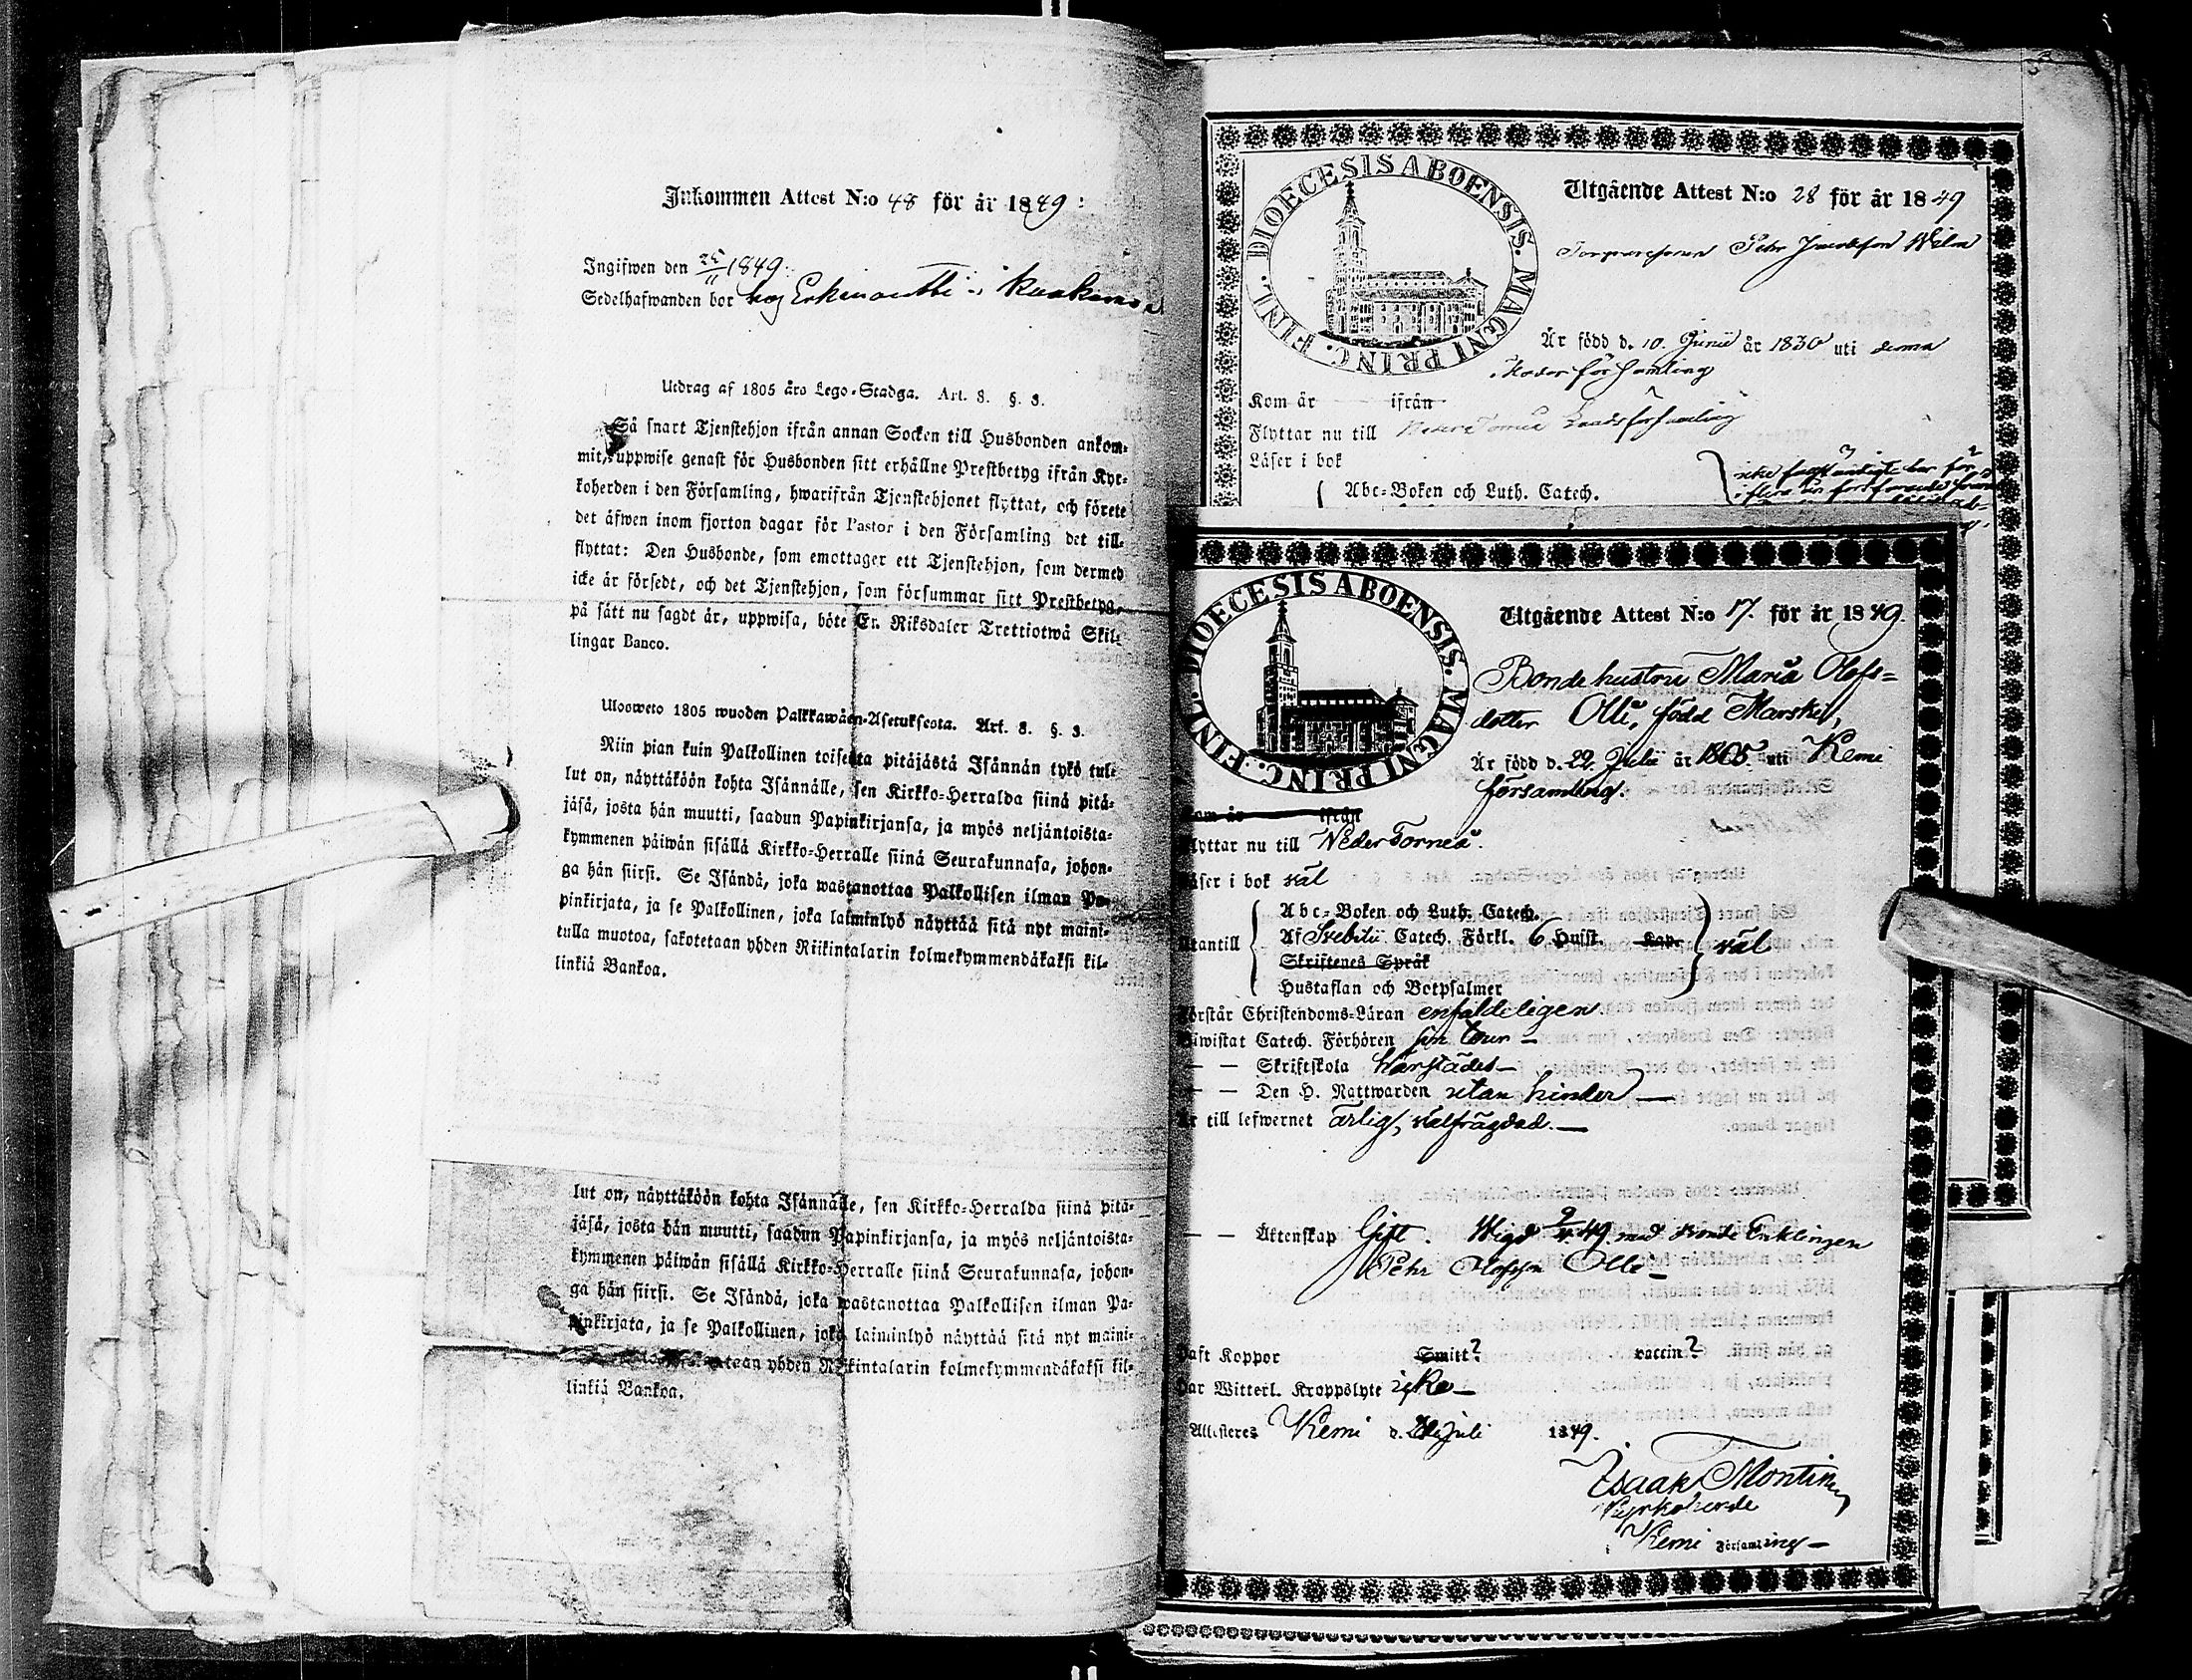 Inkommen Attest N:o 48 för år 1849:
Ingifwen den 25/11 1849.
Sedelhafwanden bor hos Erkinantti i
Utdrag af 1805 års Lego-Stadga. Art. 8. §. 3.
Så snart Tjenstehjon ifrån annan Socken till Husbonden ankom-
mit, uppwise genast för Husbonden sitt erhållne Prestbetyg ifrån Kyr-
koherden i den Församling, hwarifrån Tjenstehjonet flyttat, och förete
det äfwen inom fjorton dagar för Pastor i den Församling det till-
flyttat: Den Husbonde, som emottager ett Tjenstehjon, som dermed
icke är försedt, och det Tjenstehjon, som försummar sitt Prestbetyg,
på sätt nu sagdt är, uppwisa, böte En Riksdaler Trettiotwå Skil-
lingar Banco.
Ulosweto 1805 wuoden Palkkawäen-Asetuksesta. Art. 8. §. 3.
Niin pian kuin Palkollinen toisesta pitäjästä Isännän tykö tul-
lut on, näyttäköön kohta Isännälle, sen Kirkko-Herralda siinä pitä-
jäsä, josta hän muutti, saadun Papinkirjansa, ja myös neljäntoista-
kymmenen päiwän sisällä Kirkko-Herralle siinä Seurakunnasa, johon-
ga hän siirsi. Se Isändä, joka wastanottaa Palkollisen ilman Pa-
pinkirjata, ja se Palkollinen, joka laiminlyö näyttää sitä nyt maini-
tulla muotoa, sakotetaan yhden Riikintalarin kolmekymmendäkaksi kil-
linkiä Bankoa.
lut on, näyttäköön kohta Isännälle, sen Kirkko-Herralda siinä pitä-
jäsä, josta hän muutti, saadun Papinkirjansa, ja myös neljäntoista-
kymmenen päiwän sisällä Kirkko-Herralle siinä Seurakunnasa, johon-
ga hän siirsi. Se Isändä, joka wastanottaa Palkollisen ilman Pa-
pinkirjata, ja se Palkollinen, joka laiminlyö näyttää sitä nyt maini-
yhden Riikintalarin kolmekymmendäkaksi kil-
linkiä Bankoa.
DIOECESIS ABOENSIS. MAGNI PRINC. FINL.
Utgående Attest N:o 28 för år 1849
Petr Jacobsson
Är född d. 10. Junii år 1830 uti denna
Moderförsamling
Kom år ifrån
Flyttar nu till Neder Torneå Landsförsamling
Läser i bok
Abc-Boken och Luth. Catech.
DIOECESIS ABOENSIS. MAGNI PRINC. FINL.
Utgående Attest N:o 17. för år 1849.
Bondehustru Maria Olofs-
dotter Olli, född Marski,
Är född d. 22. Julii år 1805 uti Kemi
församling.
Kom år ifrån
Flyttar nu till Neder Torneå.
Läser i bok väl
Utantill
Abc-Boken och Luth. Catech.
Af Svebilii Catech. Förkl. 6 Hufst. Kap.
Skriftenes Språk
Hustaflan och Botpsalmer
väl
Förstår Christendoms-Läran enfaldeligen.
Biwistat Catech. Förhören sin tour —
— — Skriftskola härstädes —
— — Den H. Nattwarden utan hinder —
Är till lefwernet ärlig, välfrägdad. —
— — Äktenskap Gift. Wigd 9/4 49. med Bonde Enklingen
Petr Olofsson Olli —
Haft Koppor Smitt? vaccin?
Har Witterl. Kroppslyte icke —
Attesteres Kemi d. Juli 1849.
Isaak Montin
Kyrkoherde
Kemi Församling —